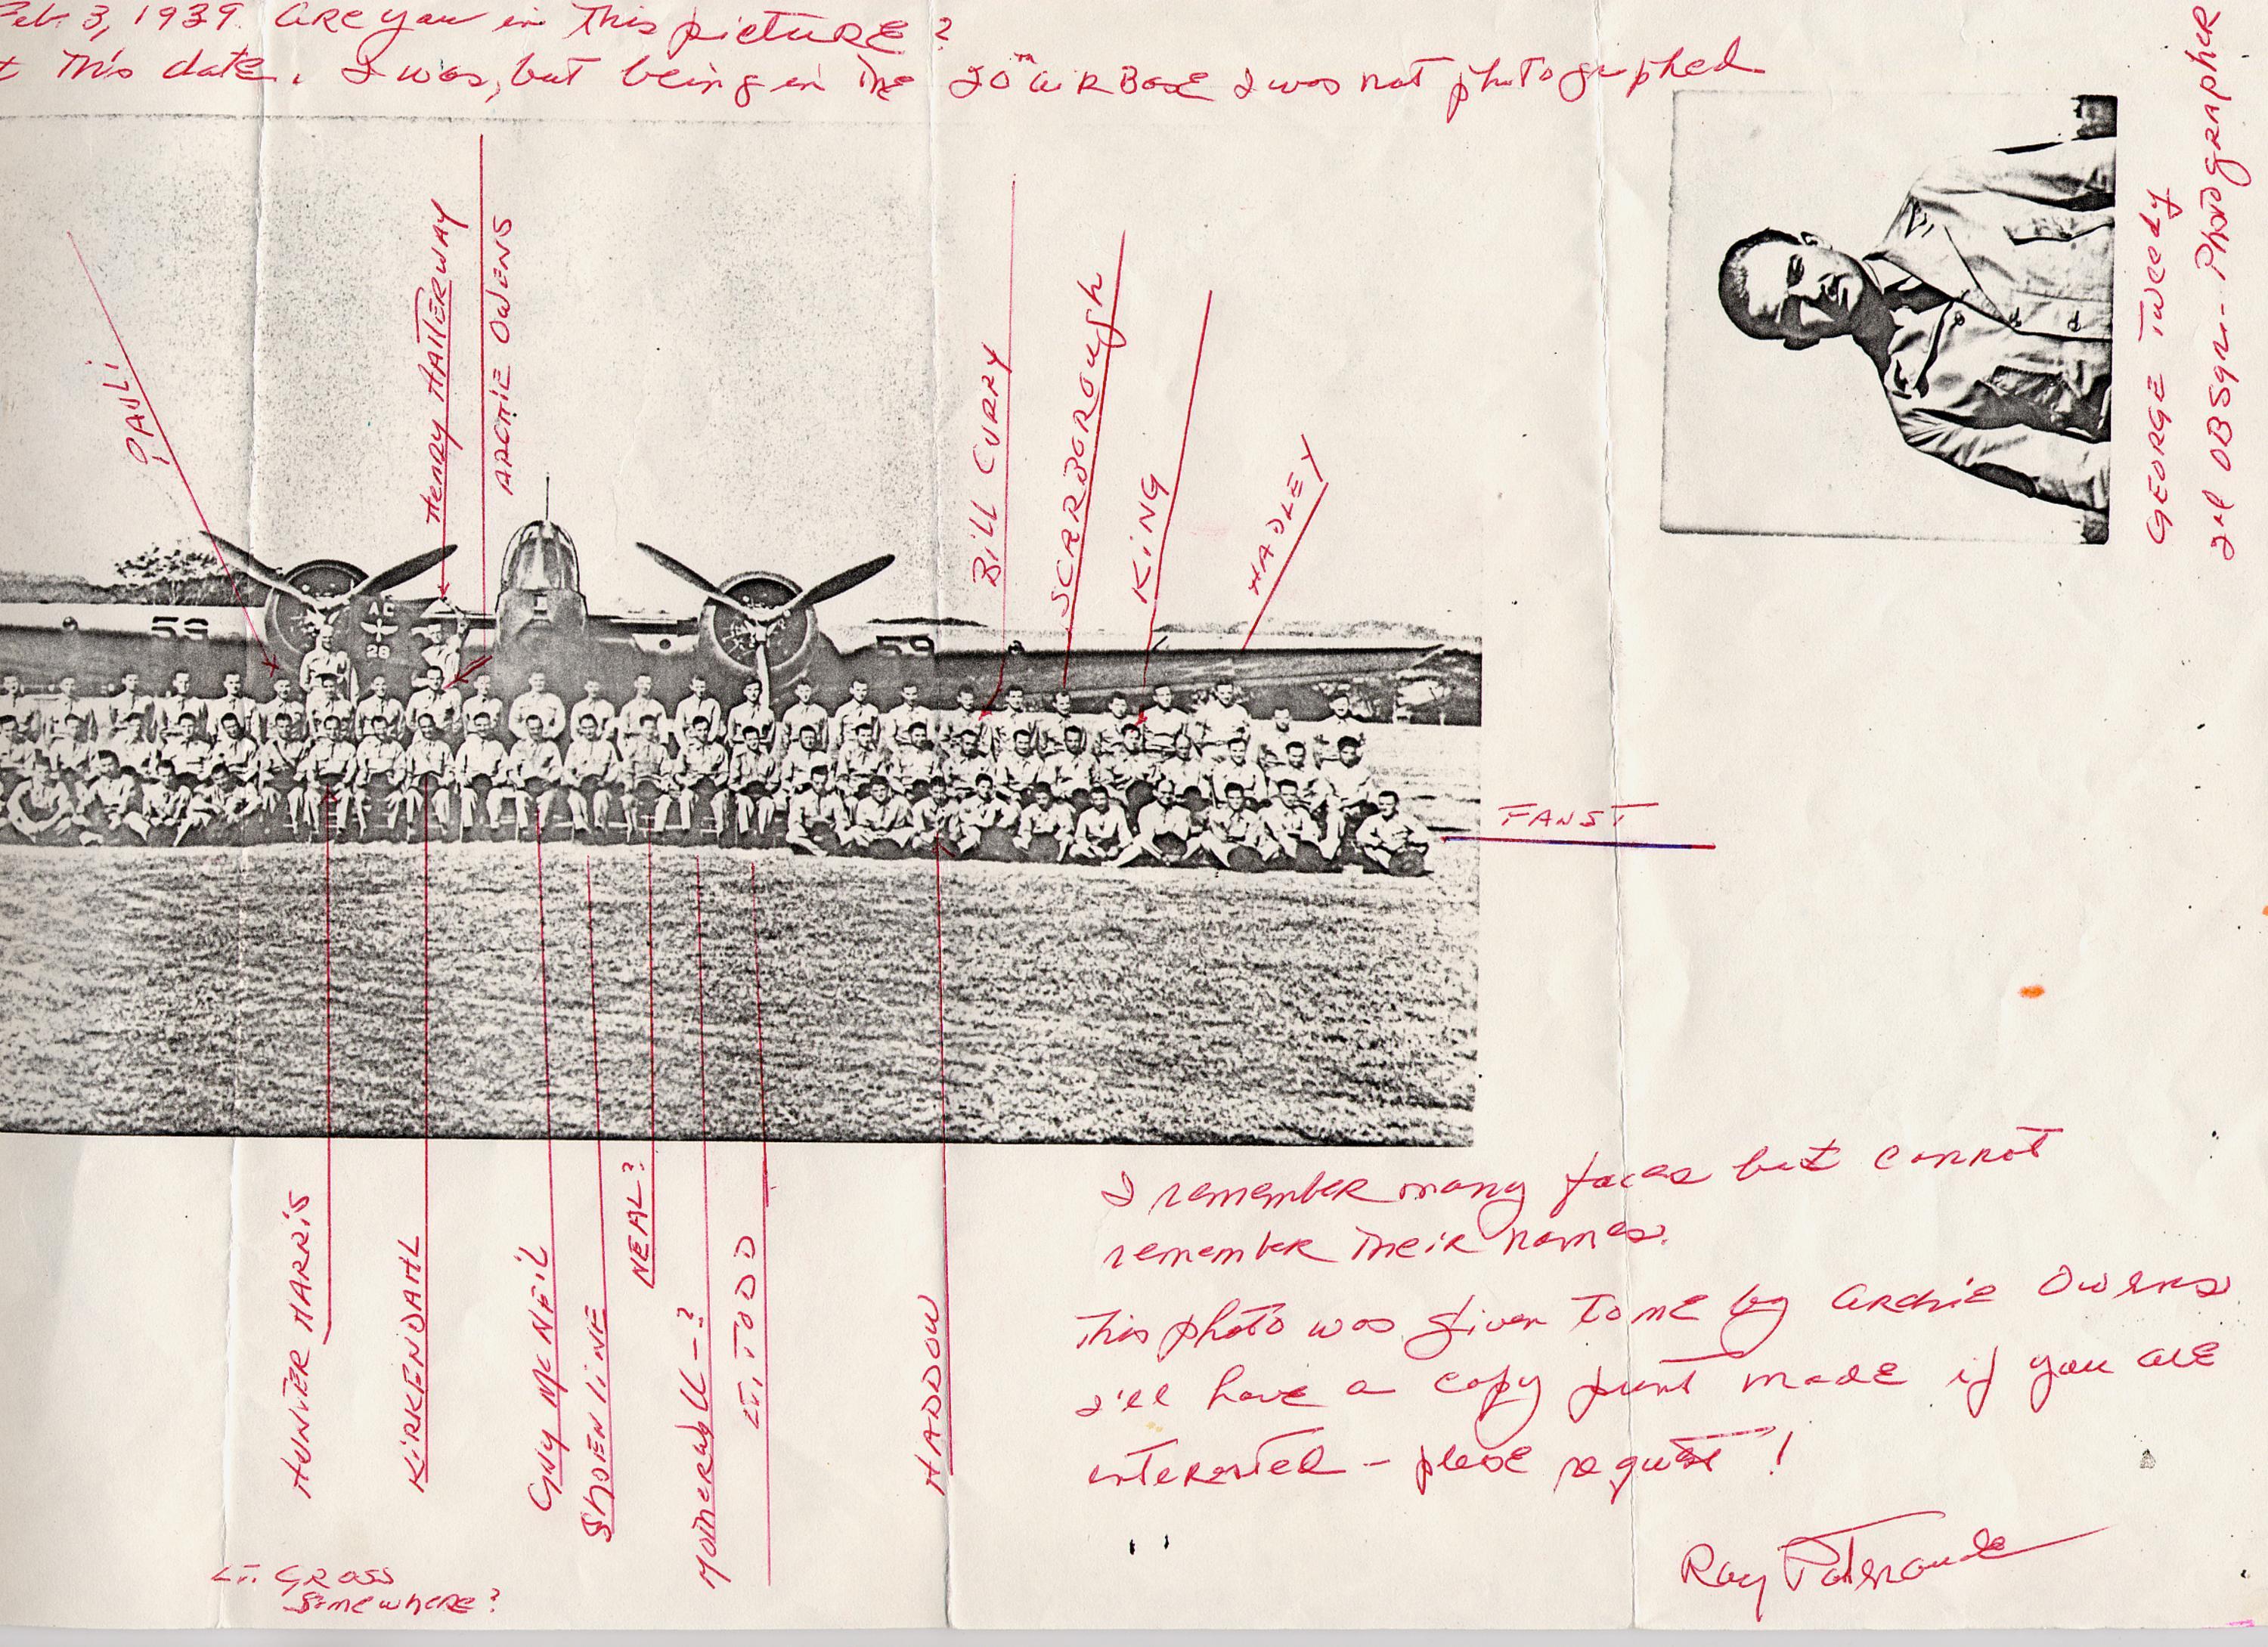 Feb. 3, 1939. Are you in This picture?
This date. I was, but being in the 20th Air Base I was not photographed
GEORGE Tweedy
2nd OBSqn -- Photographer
PAULi
Henry HATTERWAY
ARCHIE OWENS
Bill CURRY
SCARBOROUGh
KiNG
HADLEY
59
AC
28
59
FANST
HUNTER HARRiS
KiRKENDAHL
GUY Mc NEiL
ShoENLiNE
NEAL?
MoTherwell - ?
LT. TODD
HADDOW
LT. GROSS
Somewhere?
I remember many faces but cannot
remember Their names.
This photo was given To me by Archie Owens
I'll have a copy print made if you are
interested - please request!
Ray